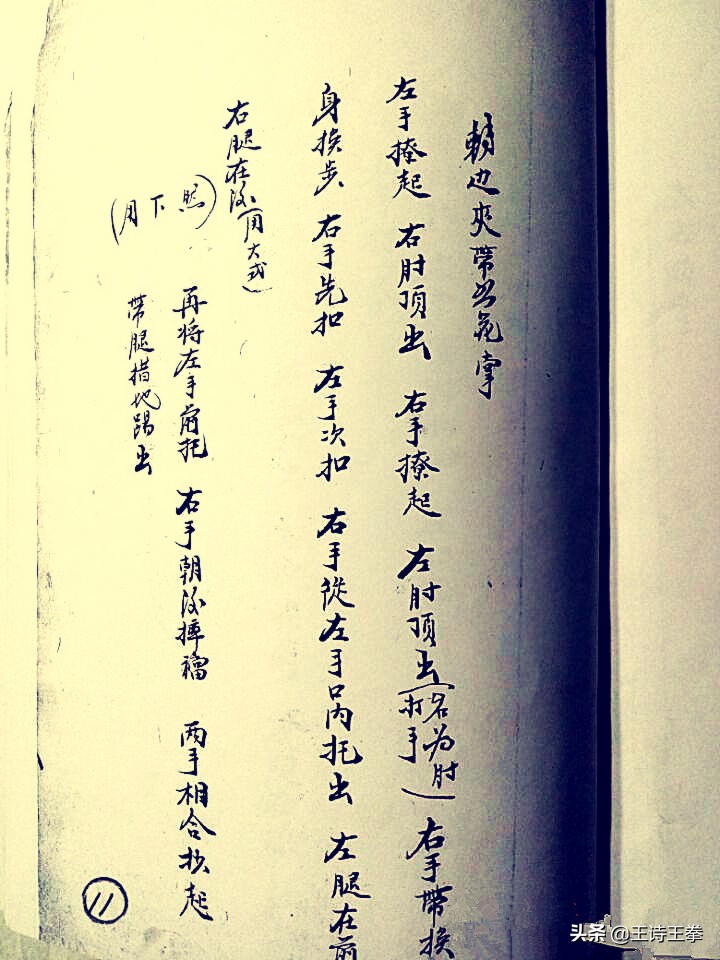 也夹带 花掌
左手撩起 右肘顶出 右手撩起 左肘顶出(名为肘打手) 右手带换
身换步 右手先扣 左手次扣 右手從左手口内托出 左腿在前
右腿在後(用大式)
再将左手前托 右手朝後摔 两手相合抄起
带腿措地踢出
(照下月)
11
头条 @王诗王拳